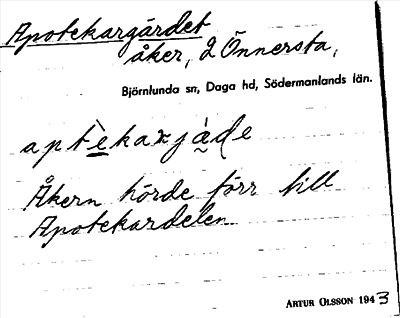 Apotekargärdet
åker, 2 Önnersta,
Björnlunda sn, Daga hd, Södermanlands län.
Åkern hörde förr till
Apotekardelen
ARTUR OLSSON 1943